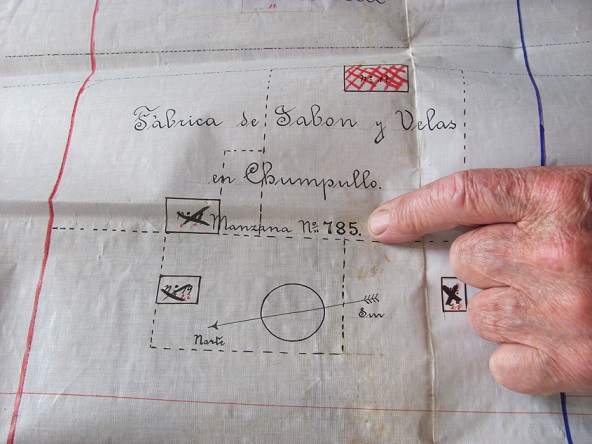 Fábrica de Jabon y Velas
en Chumpullo.
Manzana Nº 785.
Nº 19
Sur
Norte